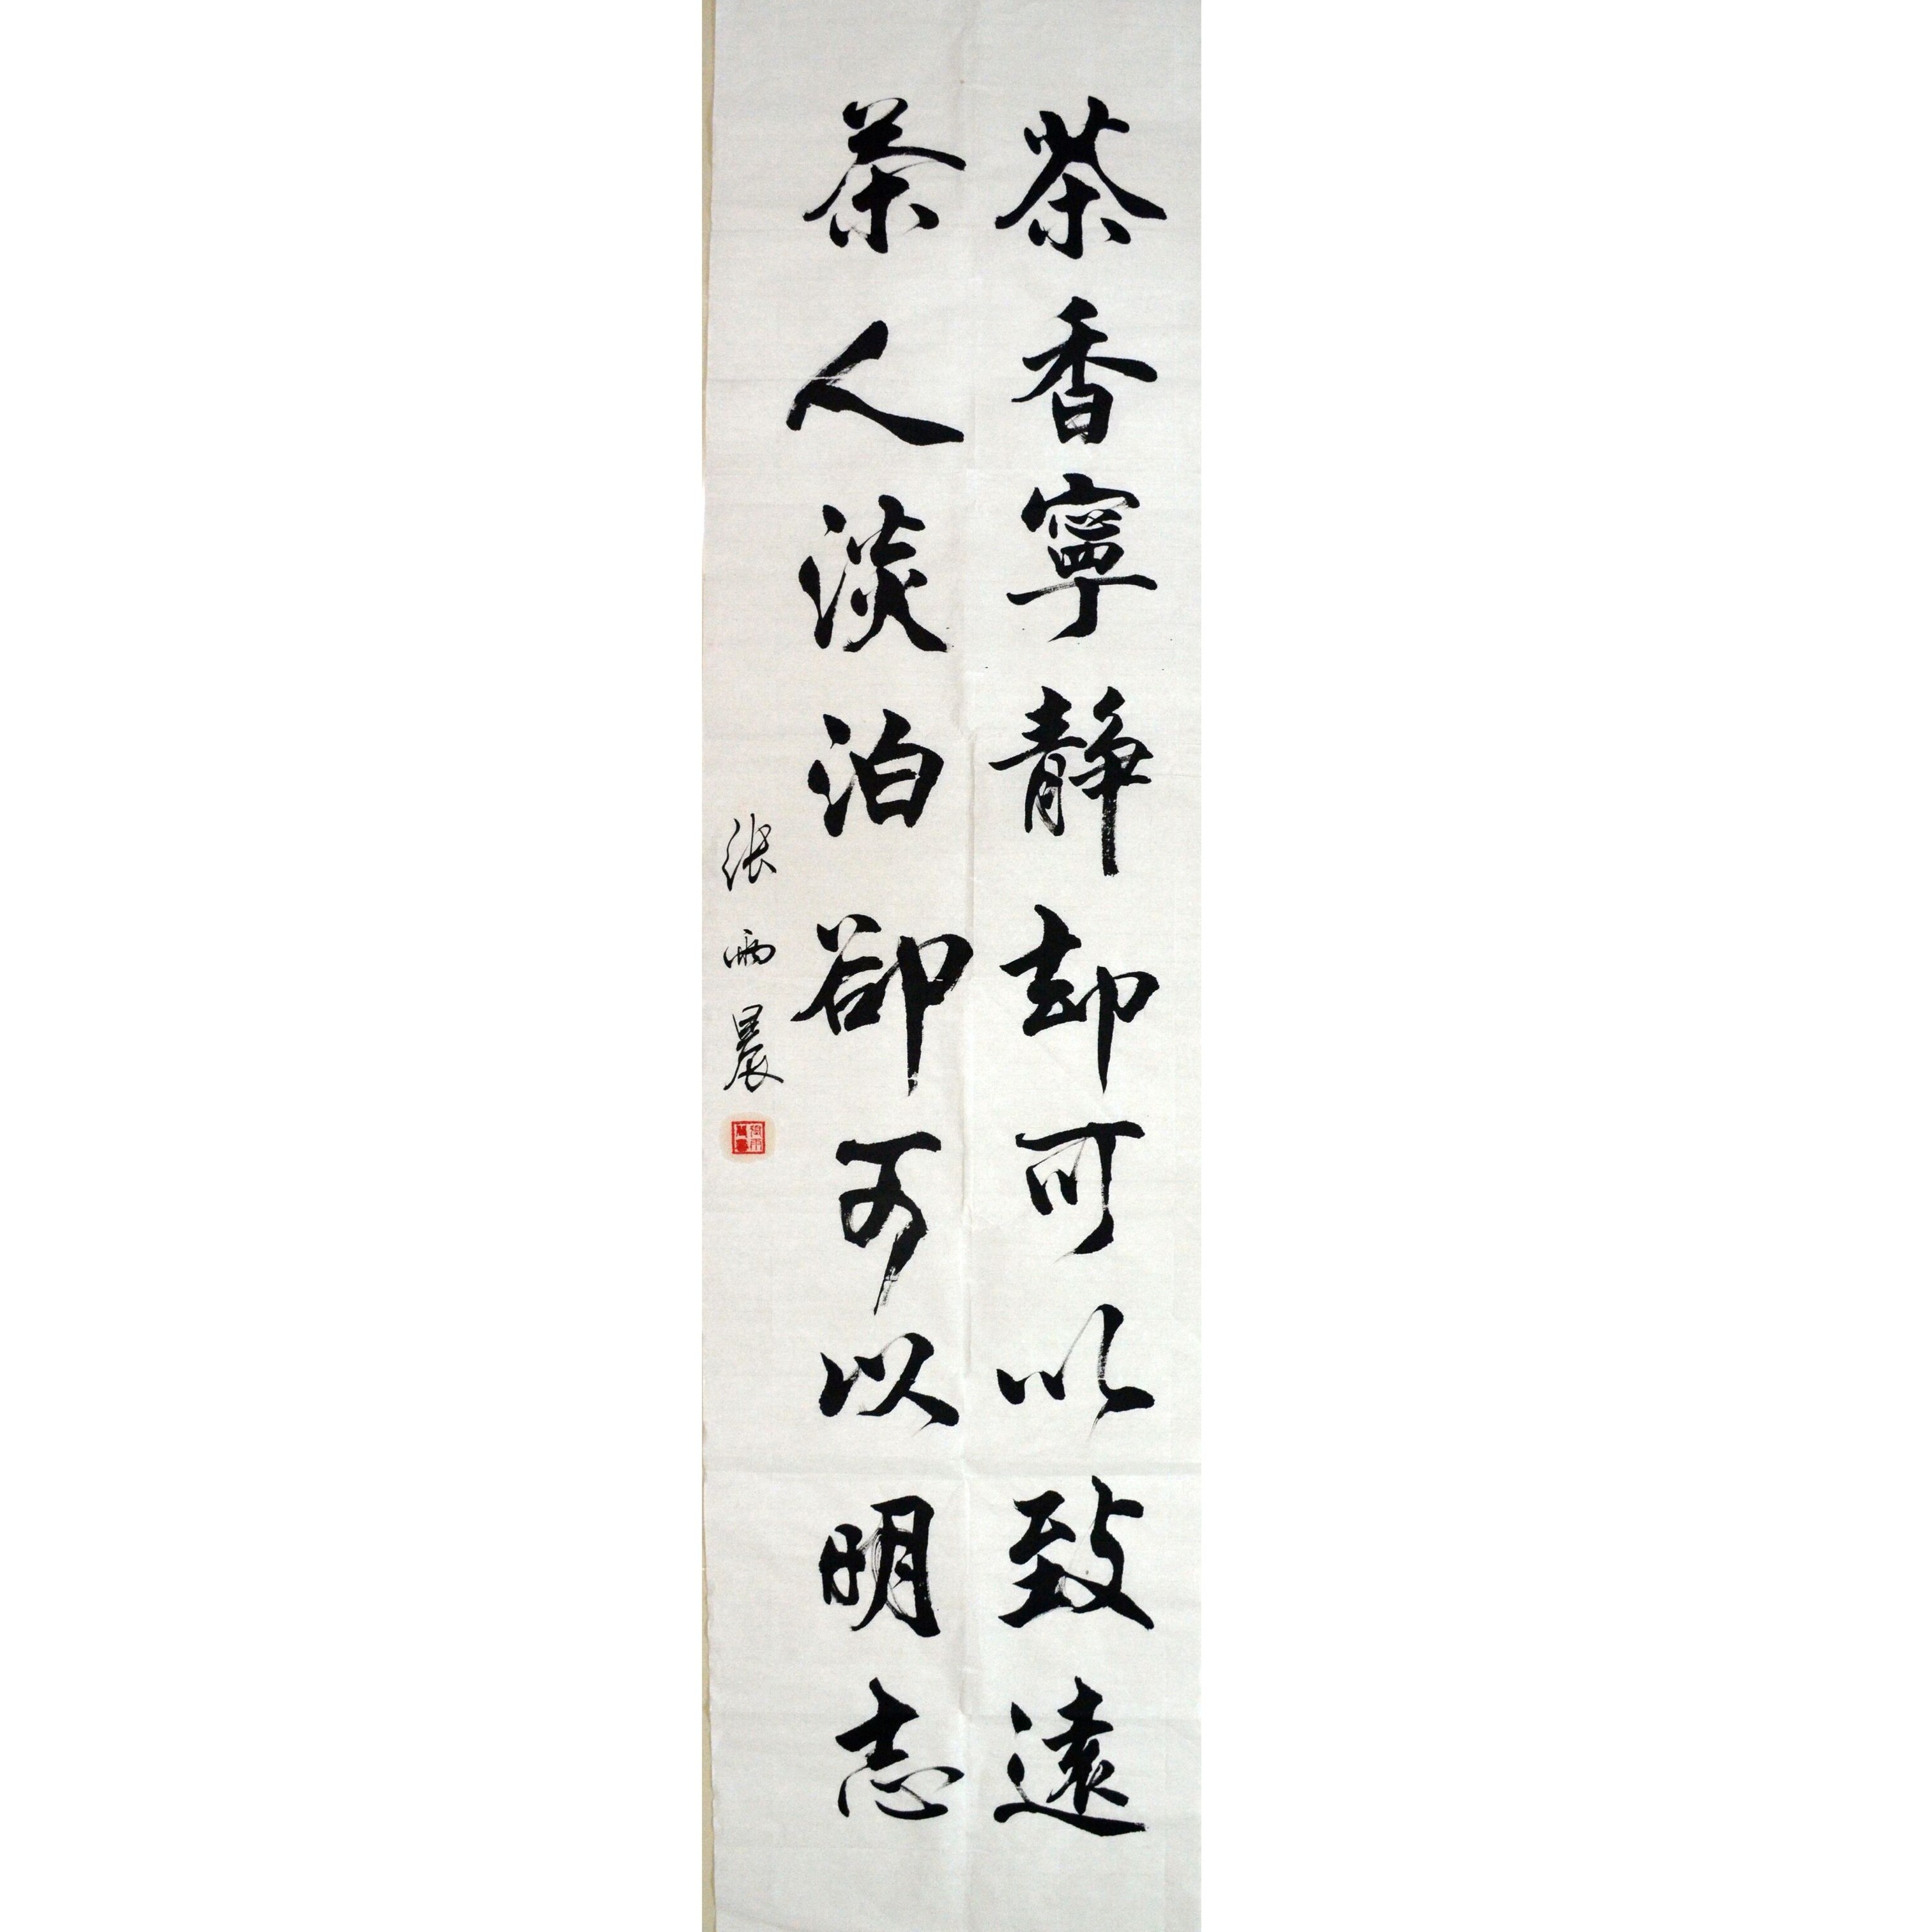 茶香寧靜却可以致遠
茶人淡泊卻可以明志
张雨晨